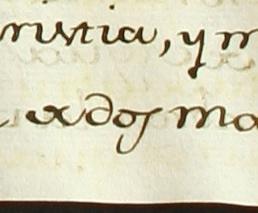 ristia, y m
ados ma